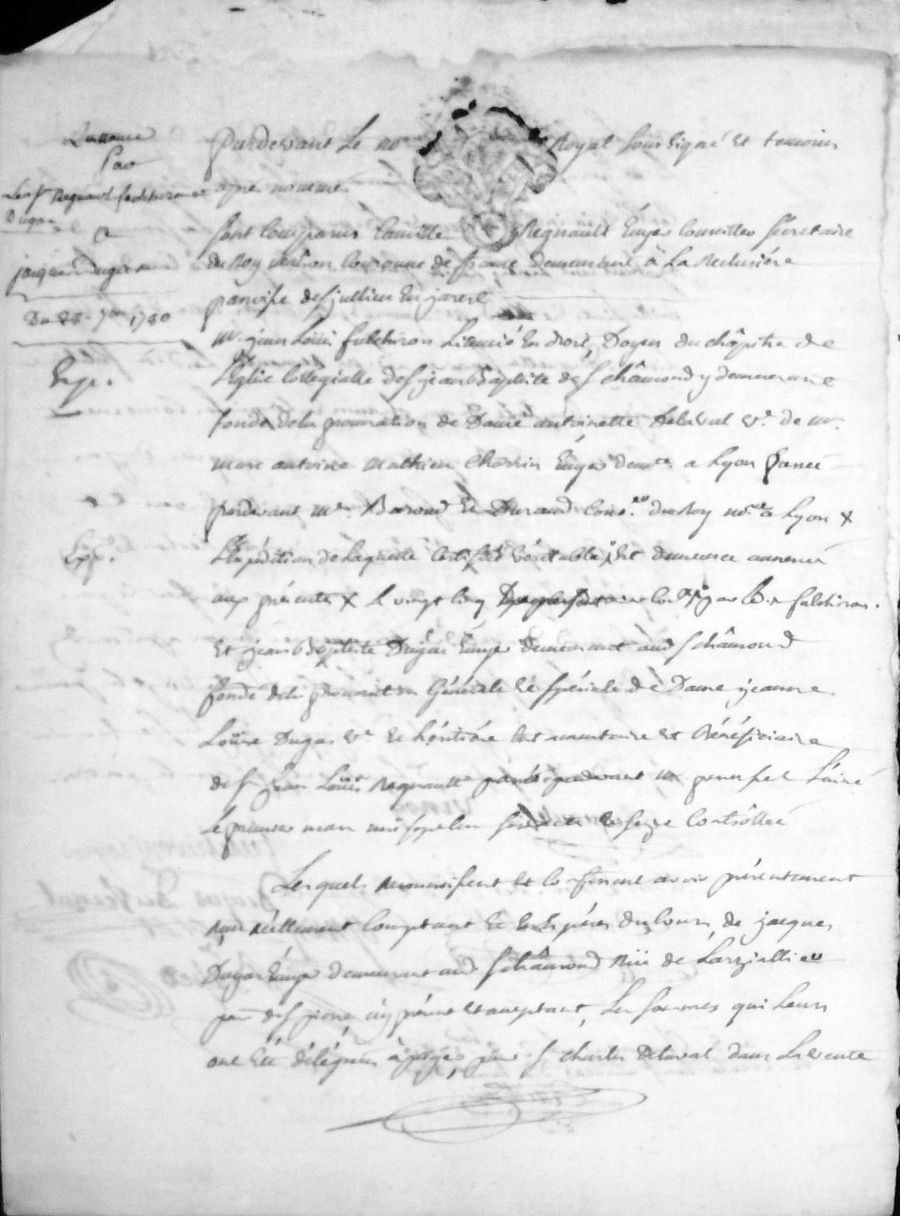 Quittance
Par
Les Sr Regnault fulchiron et
Dugas
A
jacques Dugas
Du 28. 7bre 1780
Exp.
Exp.
Pardevant Le no.re Royal Soussigné et temoins
apres nommés
Sont Comparus Camille Regnault Ecuyer Conseiller Secretaire
du Roy maison Couronne de france demeurant à La
paroisse de St jullien En jarest
Mr. jean Louis fulchiron Licencié En droit, Doyen du chapitre de
L'Eglise Collegialle de St jean Baptiste de St chamond y demeurant
fondé de la procuration de Dame antoinette Delaval Ve. de Mr.
Marc antoine Mathieu Chossin Ecuyer demt. a Lyon passée
pardevant Me. Baroud et Durand Cons.rs du Roy no.res a Lyon x
L'Expédition de laquelle Certifiée véritable Est demeurée annexée
aux présentes x Le vingt Cinq par fulchiron.
Et jean Baptiste Dugas Ecuyer demeurant aud St chamond
fondé de la procuration Générale et spéciale de Dame jeanne
Louise Dugas Ve. et héritière testamentaire et Bénéficiaire
de Sr jean Louis Regnault passée pardevant Me L'ainé
Le premier mars Controllée
Lesquels reconnoissent et Confessent avoir présentement
Reçu réellement Comptant et en Espèces du Cours de jacques
Dugas Ecuyer demeurant aud St chamond
icy présent et acceptant, Les sommes qui Leurs
ont Eté déléguées à payer par Sr charles Delaval dans La vente